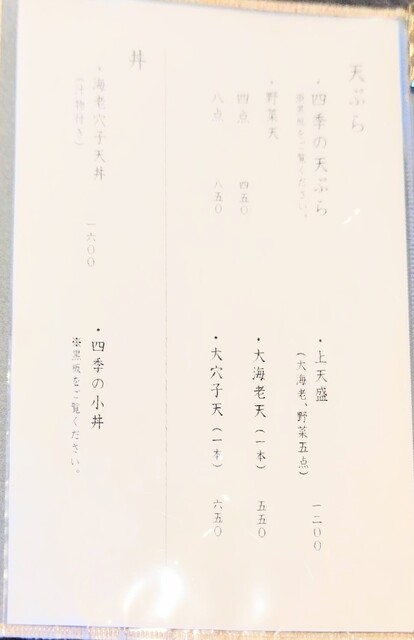 天ぷら
・四季の天ぷら
※黒板をご覧ください。
・野菜天
四点 四五〇
八点 八五〇
・上天盛 一二〇〇
（大海老、野菜五点）
・大海老天（一本） 五五〇
・大穴子天（一本） 六五〇
丼
・海老穴子天丼 一六〇〇
（汁物付き）
・四季の小丼
※黒板をご覧ください。